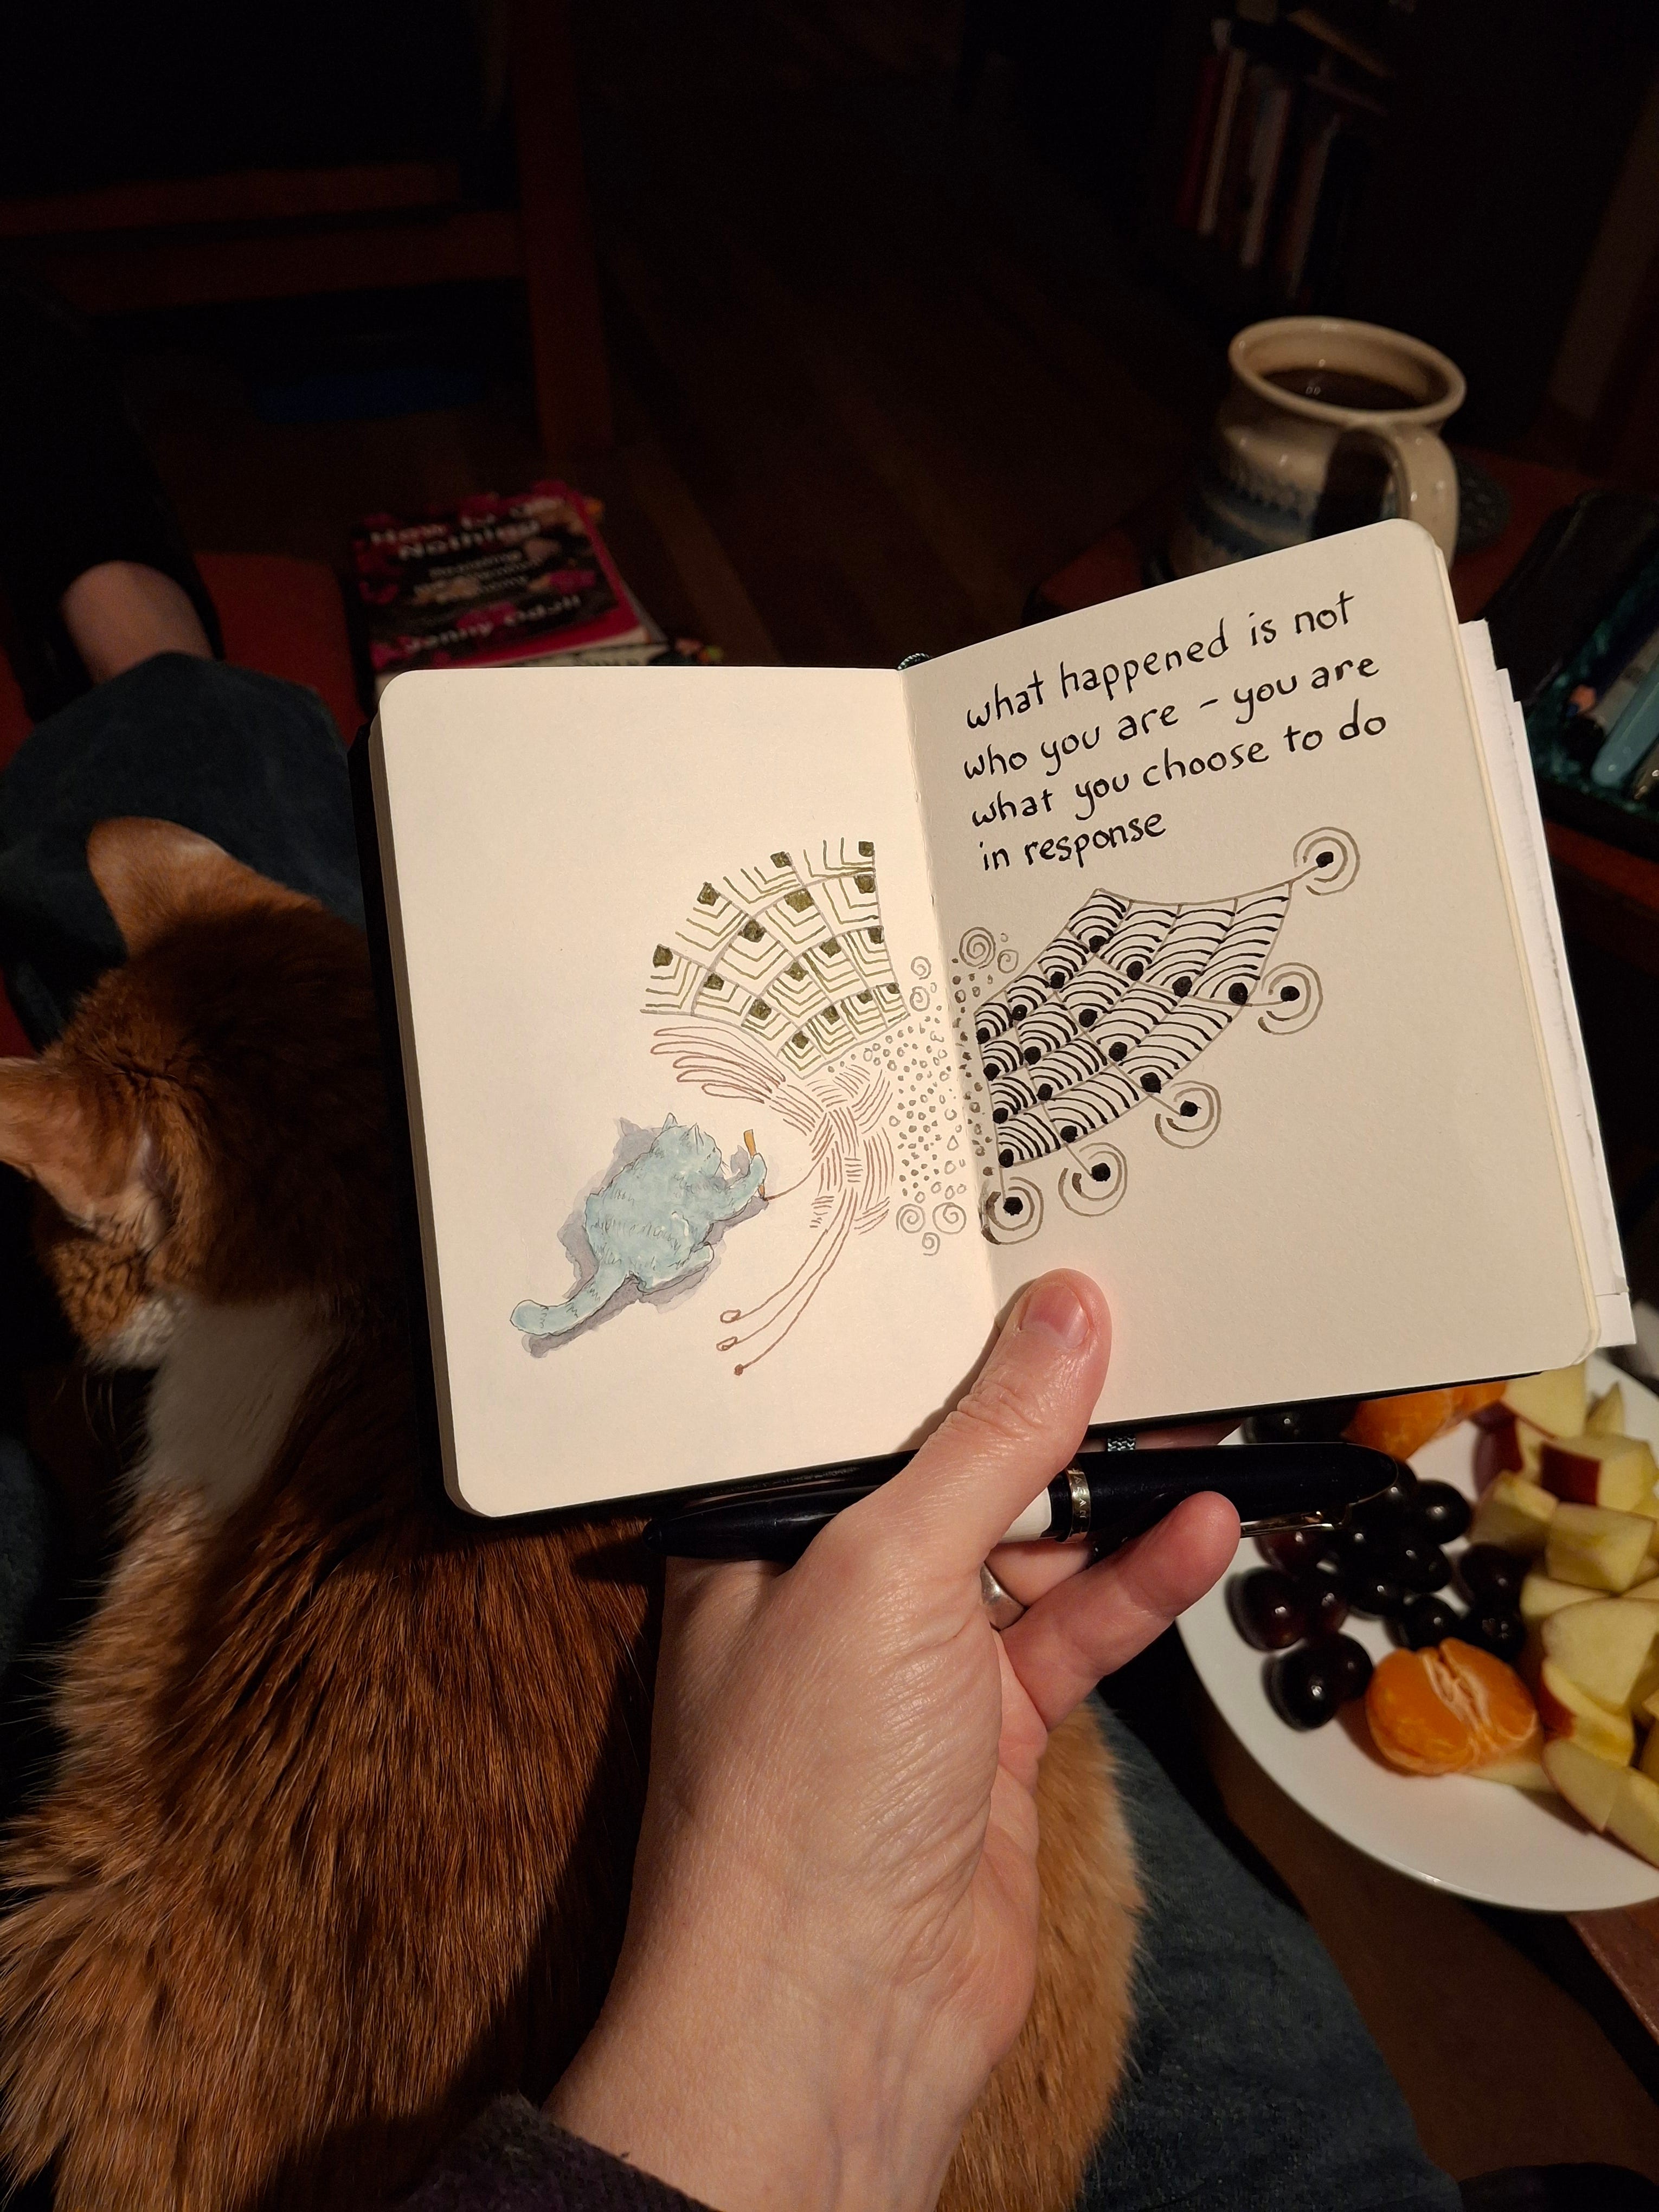 How to do
Nothing
Resisting
the Attention
Economy
Jenny Odell
what happened is not
who you are – you are
what you choose to do
in response